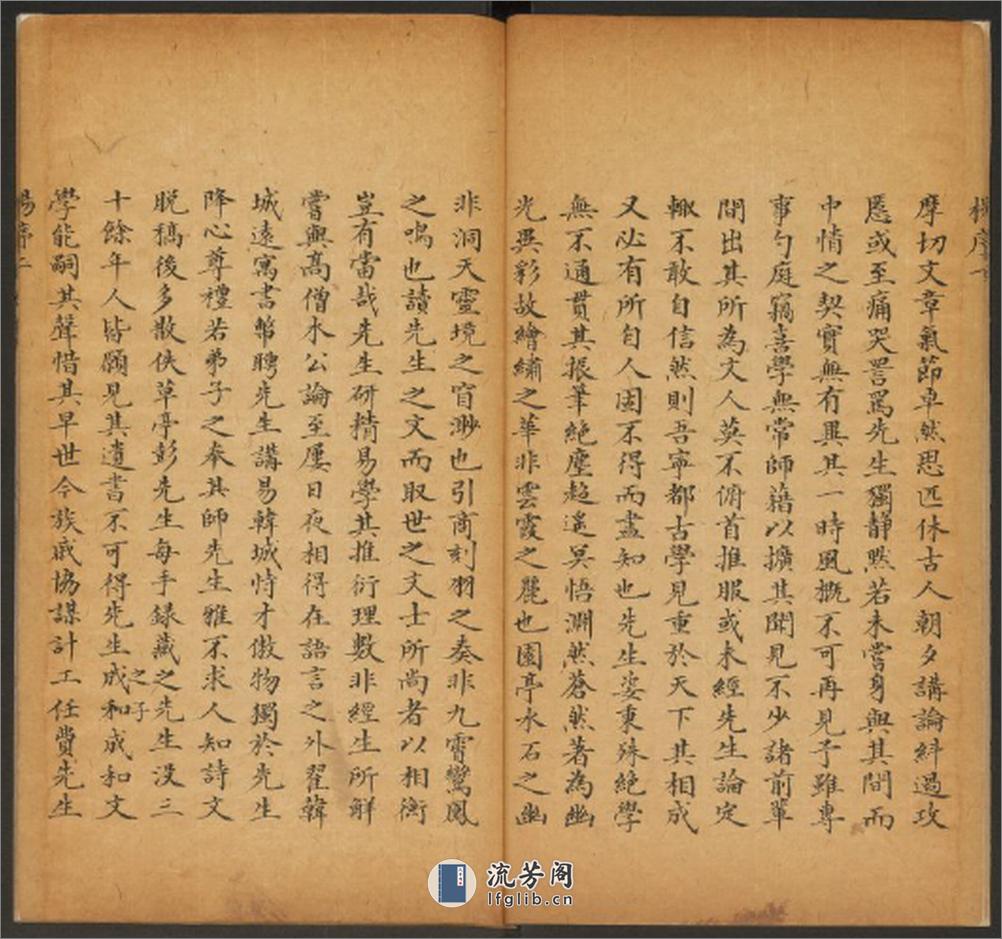 楊序一
摩切文章氣節卓然思匹休古人朝夕講論糾過攻
慝或至痛哭詈罵先生獨靜默若未嘗身與其間而
中情之契實無有異其一時風概不可再見予雖專
事勺庭竊喜學無常師藉以擴其聞見不少諸前輩
間出其所為文人莫不俯首推服或未經先生論定
輙不敢自信然則吾寧都古學見重於天下其相成
又必有所自人固不得而盡知也先生姿秉殊絶學
無不通貫其振筆絶塵超遙冥悟淵然蒼然著為幽
光異彩故繪繡之華非雲霞之麗也園亭水石之幽
非洞天靈境之窅渺也引商刻羽之奏非九霄鸞鳳
之鳴也讀先生之文而取世之文士所尚者以相衡
豈有當哉先生研精易學其推衍理數非經生所解
嘗與高僧水公論至屢日夜相得在語言之外翟韓
城遠寓書幣聘先生講易韓城恃才傲物獨於先生
降心尊禮若弟子之奉其師先生雅不求人知詩文
脱稿後多散佚草亭彭先生每手録藏之先生沒三
十餘年人皆願見其遺書不可得先生之子成和成和文
學能嗣其聲惜其早世今族戚協謀計工任費先生
楊序二
流芳阁
lfglib.cn